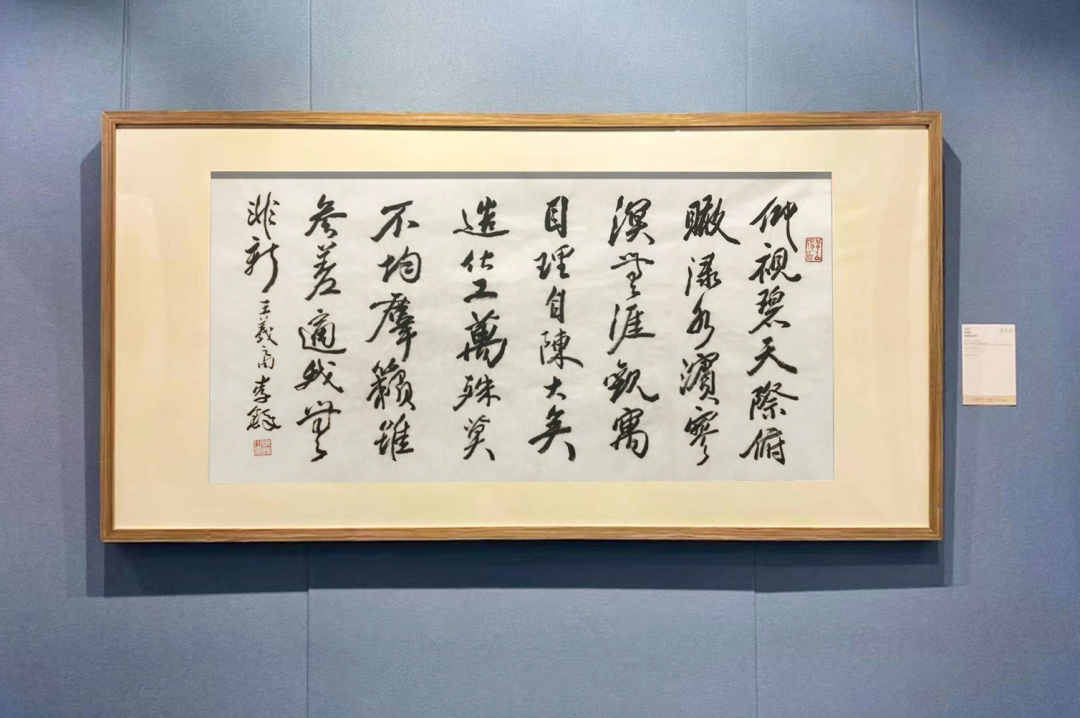 仰視碧天際俯
瞰渌水濱寥
溟無涯觀寓
目理自陳大矣
造化工萬殊莫
不均羣籟雖
參差適我無
非新
王羲 李